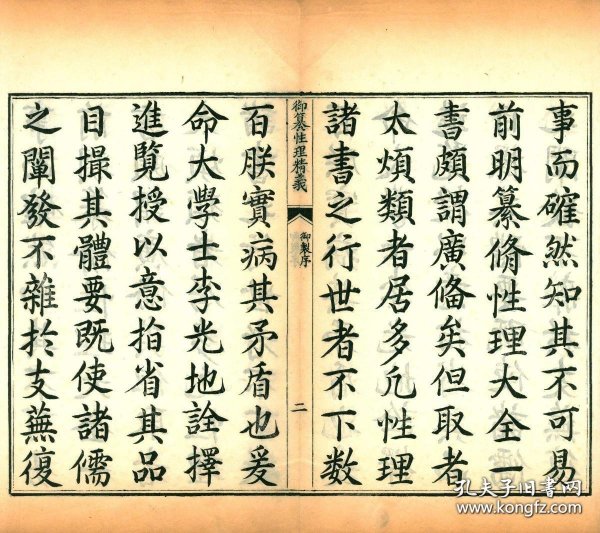 事而確然知其不可易
前明纂脩性理大全一
書頗謂廣俻矣但取者
太煩類者居多凢性理
諸書之行世者不下数
御纂性理精義
御製序
二
百朕實病其矛盾也爰
命大學士李光地詮擇
進覽授以意指省其品
目撮其體要既使諸儒
之闡發不雜於支蕪復
孔夫子旧书网
www.kongfz.com